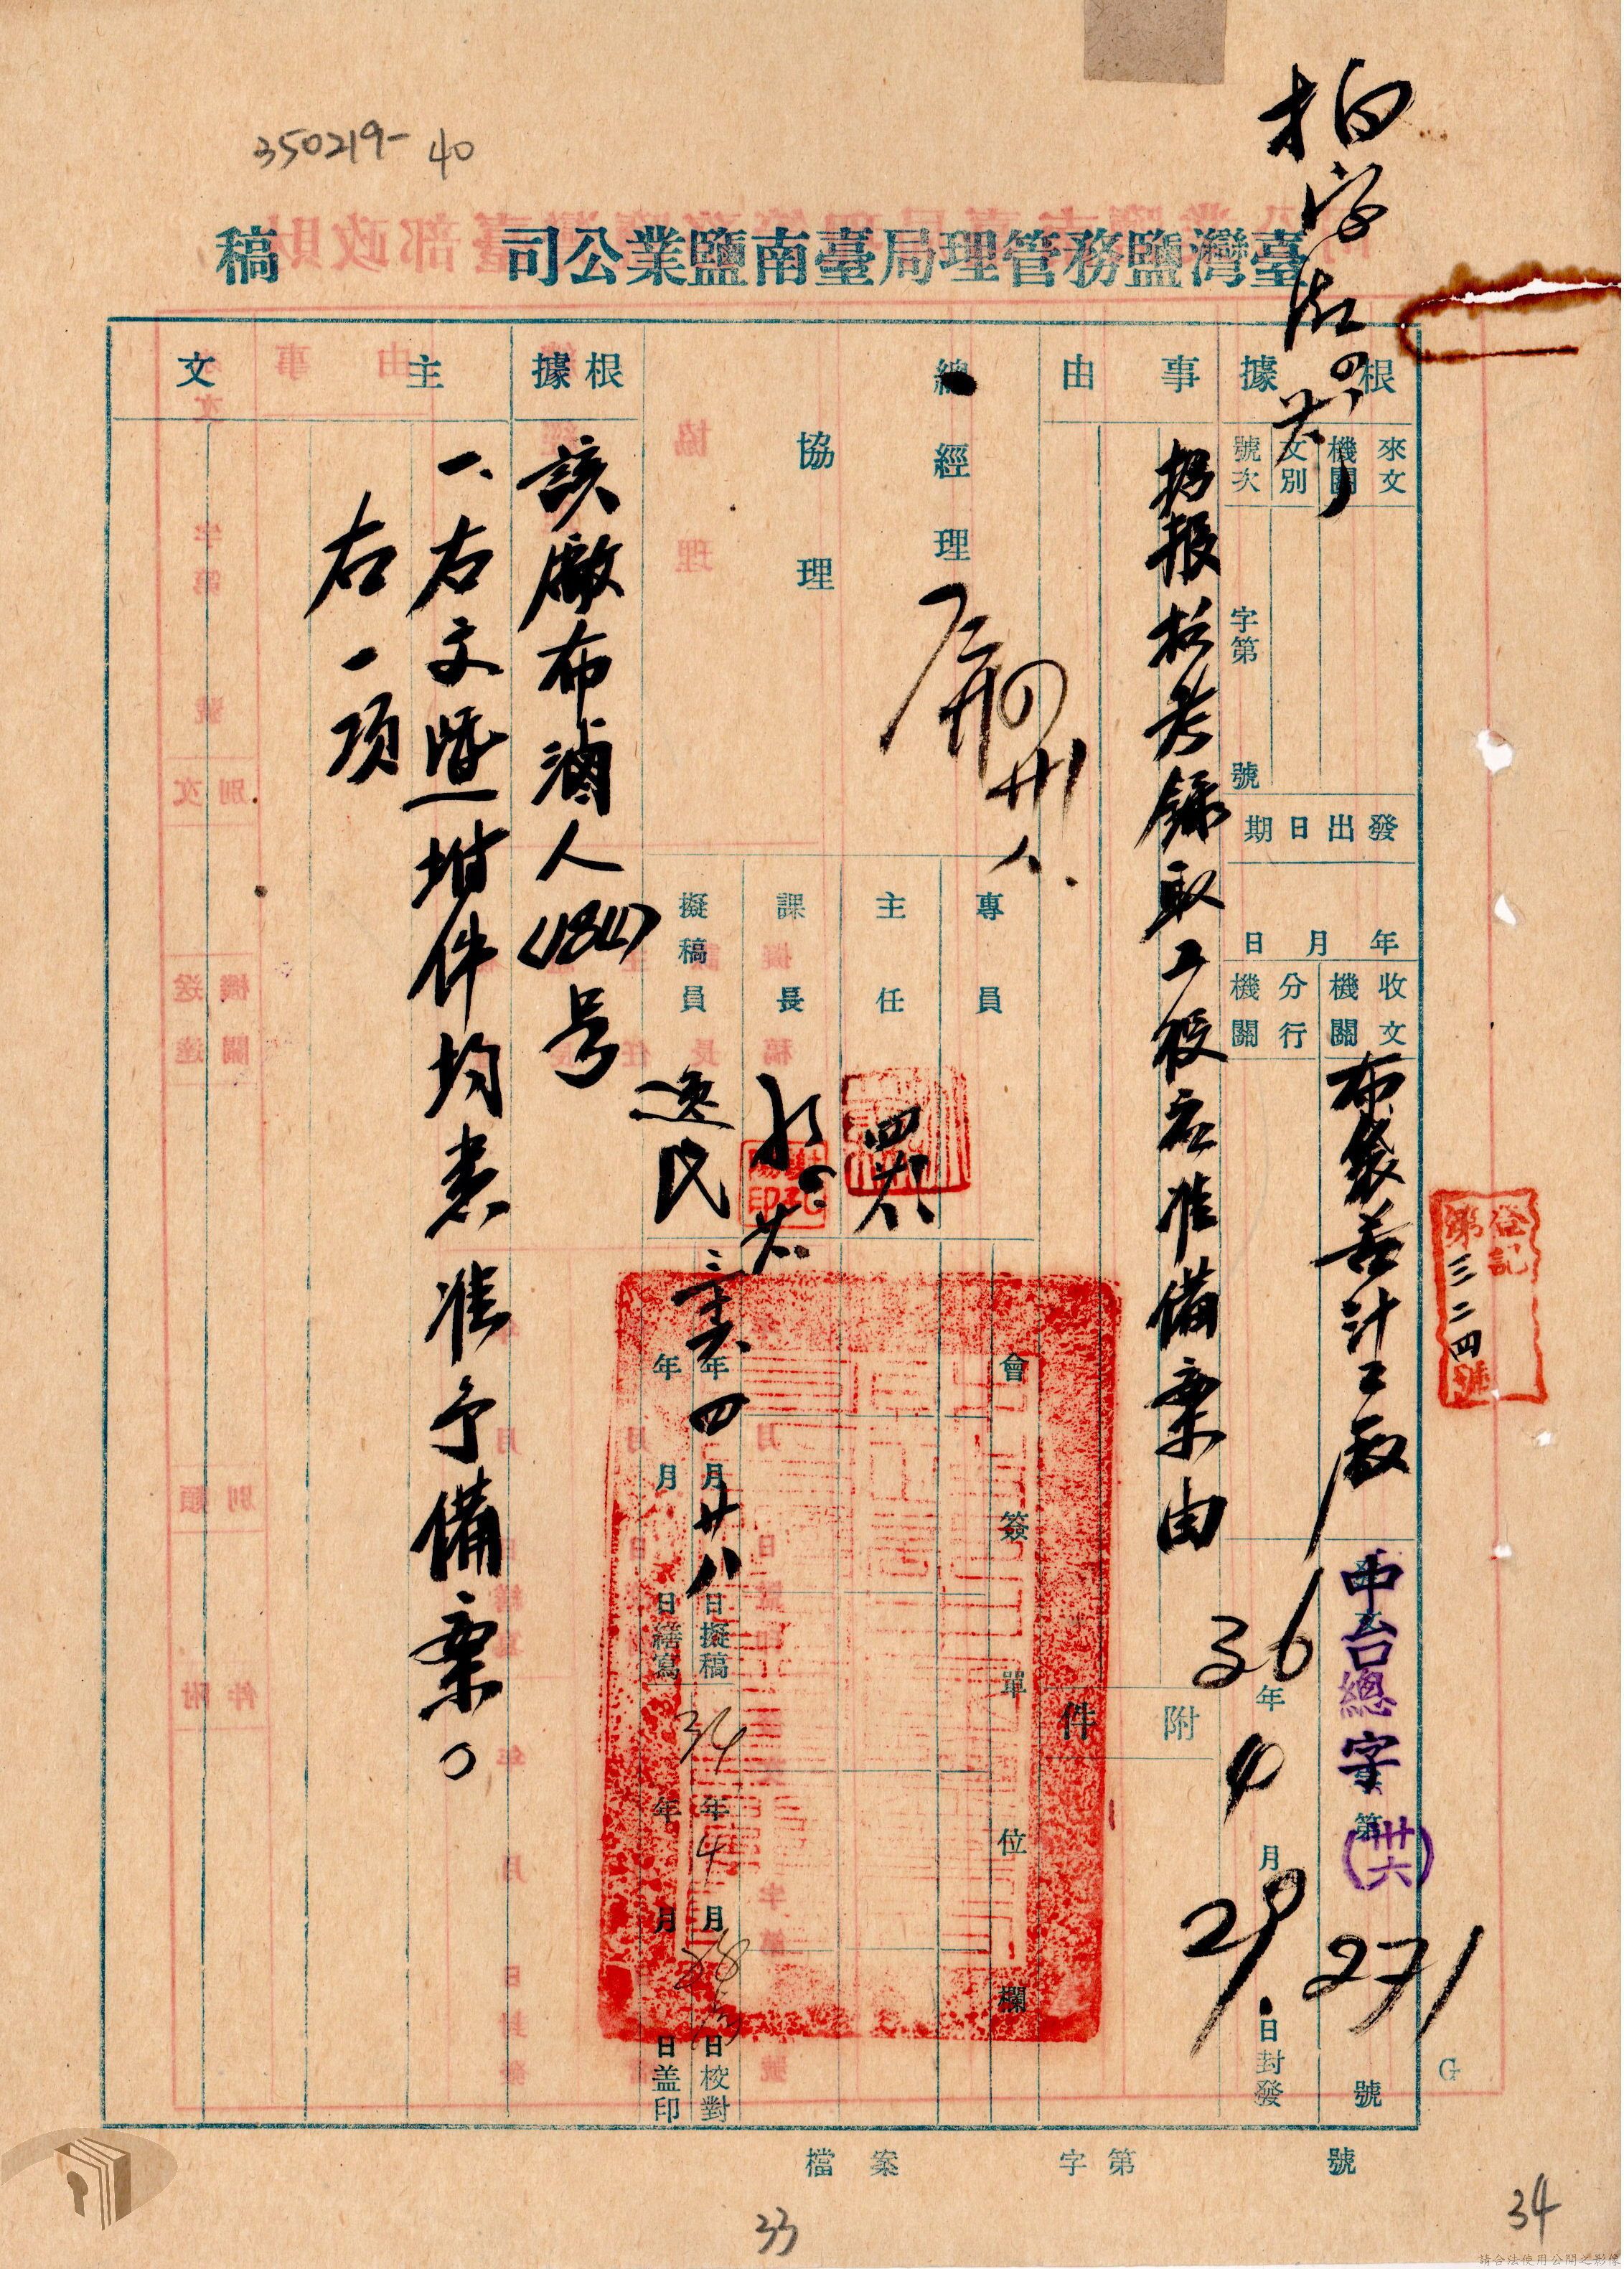 350219-40
臺灣鹽務管理局臺南鹽業公司 稿
根據
來文機關
文別
號次
字第 號
發出日期
年 月 日
收文機關
布袋苦汁工廠
分行機關
申台總字第
(卅六)
271
號
36年4月29日封發
登記第三二四號
事由
据报招考錄取工役应准備案由
附件
總經理
協理
專員
主任
課長
擬稿員
逸民
會簽單位欄
年四月廿八日擬稿
年 月 日繕寫
年4月 日校對
年 月 日盖印
根據
該廠布滷人(184)号
主文
一、右文暨坿件均悉准予備案。
右一项
檔案 字第 號
G
33
34
請合法使用公開之影像